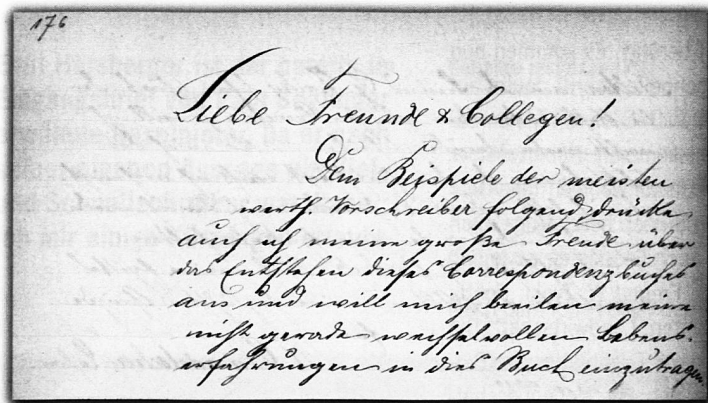 176
Liebe Freunde & Collegen!
Dem Beispiele der meisten
werth. Vorschreiber folgend, drücke
auch ich meine große Freude über
das Entstehen dieses Correspondenzbuches
aus und will mich beeilen meine
nicht gerade wechselvollen Lebens-
erfahrungen in dies Buch einzutragen.